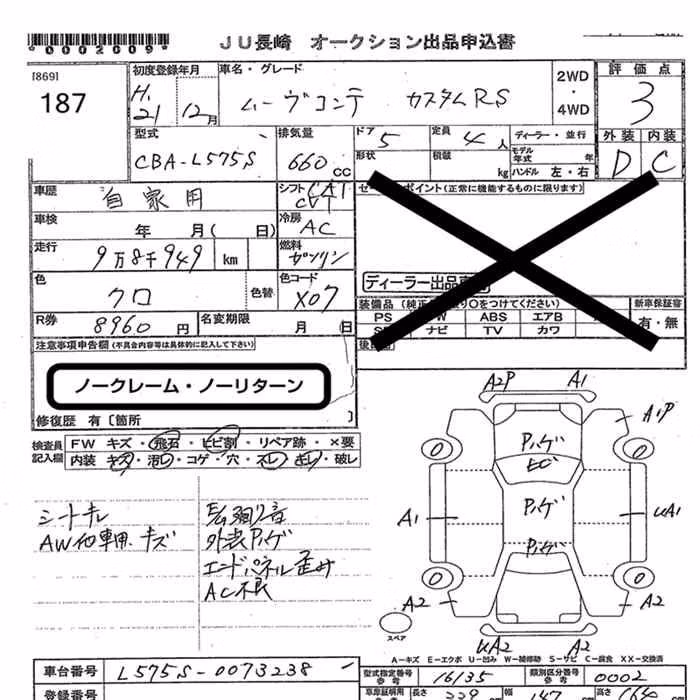 *0002009*
JU長崎 オークション出品申込書
[869]
187
初度登録年月
H.21 12月
車名・グレード
ムーヴコンテ カスタムRS
2WD・4WD
評価点
3
型式
CBA-L575S
排気量
660cc
ドア 5
定員 4人
ディーラー・並行
形状
積載 kg
モデル年式 年
ハンドル 左・右
外装 内装
D C
車歴 自家用
シフト CA1 CVT
車検 年 月( 日)
冷房 AC
走行 9万8千949 km
燃料 ガソリン
色 クロ
色替
色コード X07
R券 8960円
名変期限 月 日
ポイント(正常に機能するものに限ります)
ディーラー出品車
をつけてください)
PS ABS エアB
ナビ TV カワ
新車保証書
有・無
注意事項申告欄(不具合内容等は具体的に記入して下さい)
ノークレーム・ノーリターン
修復歴 有〔箇所 〕
検査員記入欄
FW キズ・飛石・ヒビ割・リペア跡・×要
内装 キズ・汚レ・コゲ・穴・スレ・キレ・破レ
シートキレ
AW他車用.キズ
外装ハゲ
エンドパネル歪ミ
AC不良
A2P A1
A1P
A1 UA1
A2 A2
UA2 A2
スペア
A-キズ E-エクボ U-凹み W-補修跡 S-サビ C-腐食 XX-交換済
車台番号 L575S-0073238
型式指定番号 参考 16135
類別区分番号 参考 0002
登録番号
長さ 339 cm
幅 147
高さ